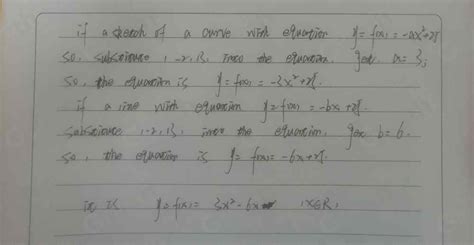 if a sketch of a curve with equation y=f(x)=-ax²+25
so, substitute into the equation. get a=3,
so, the equation is y=f(x)=-3x²+
if a line with equation y=f(x)=-bx+
substitute into the equation, get b=6.
so, the equation is y=f(x)=-6x+
is y=f(x)= 3x²-6x (x∈R)